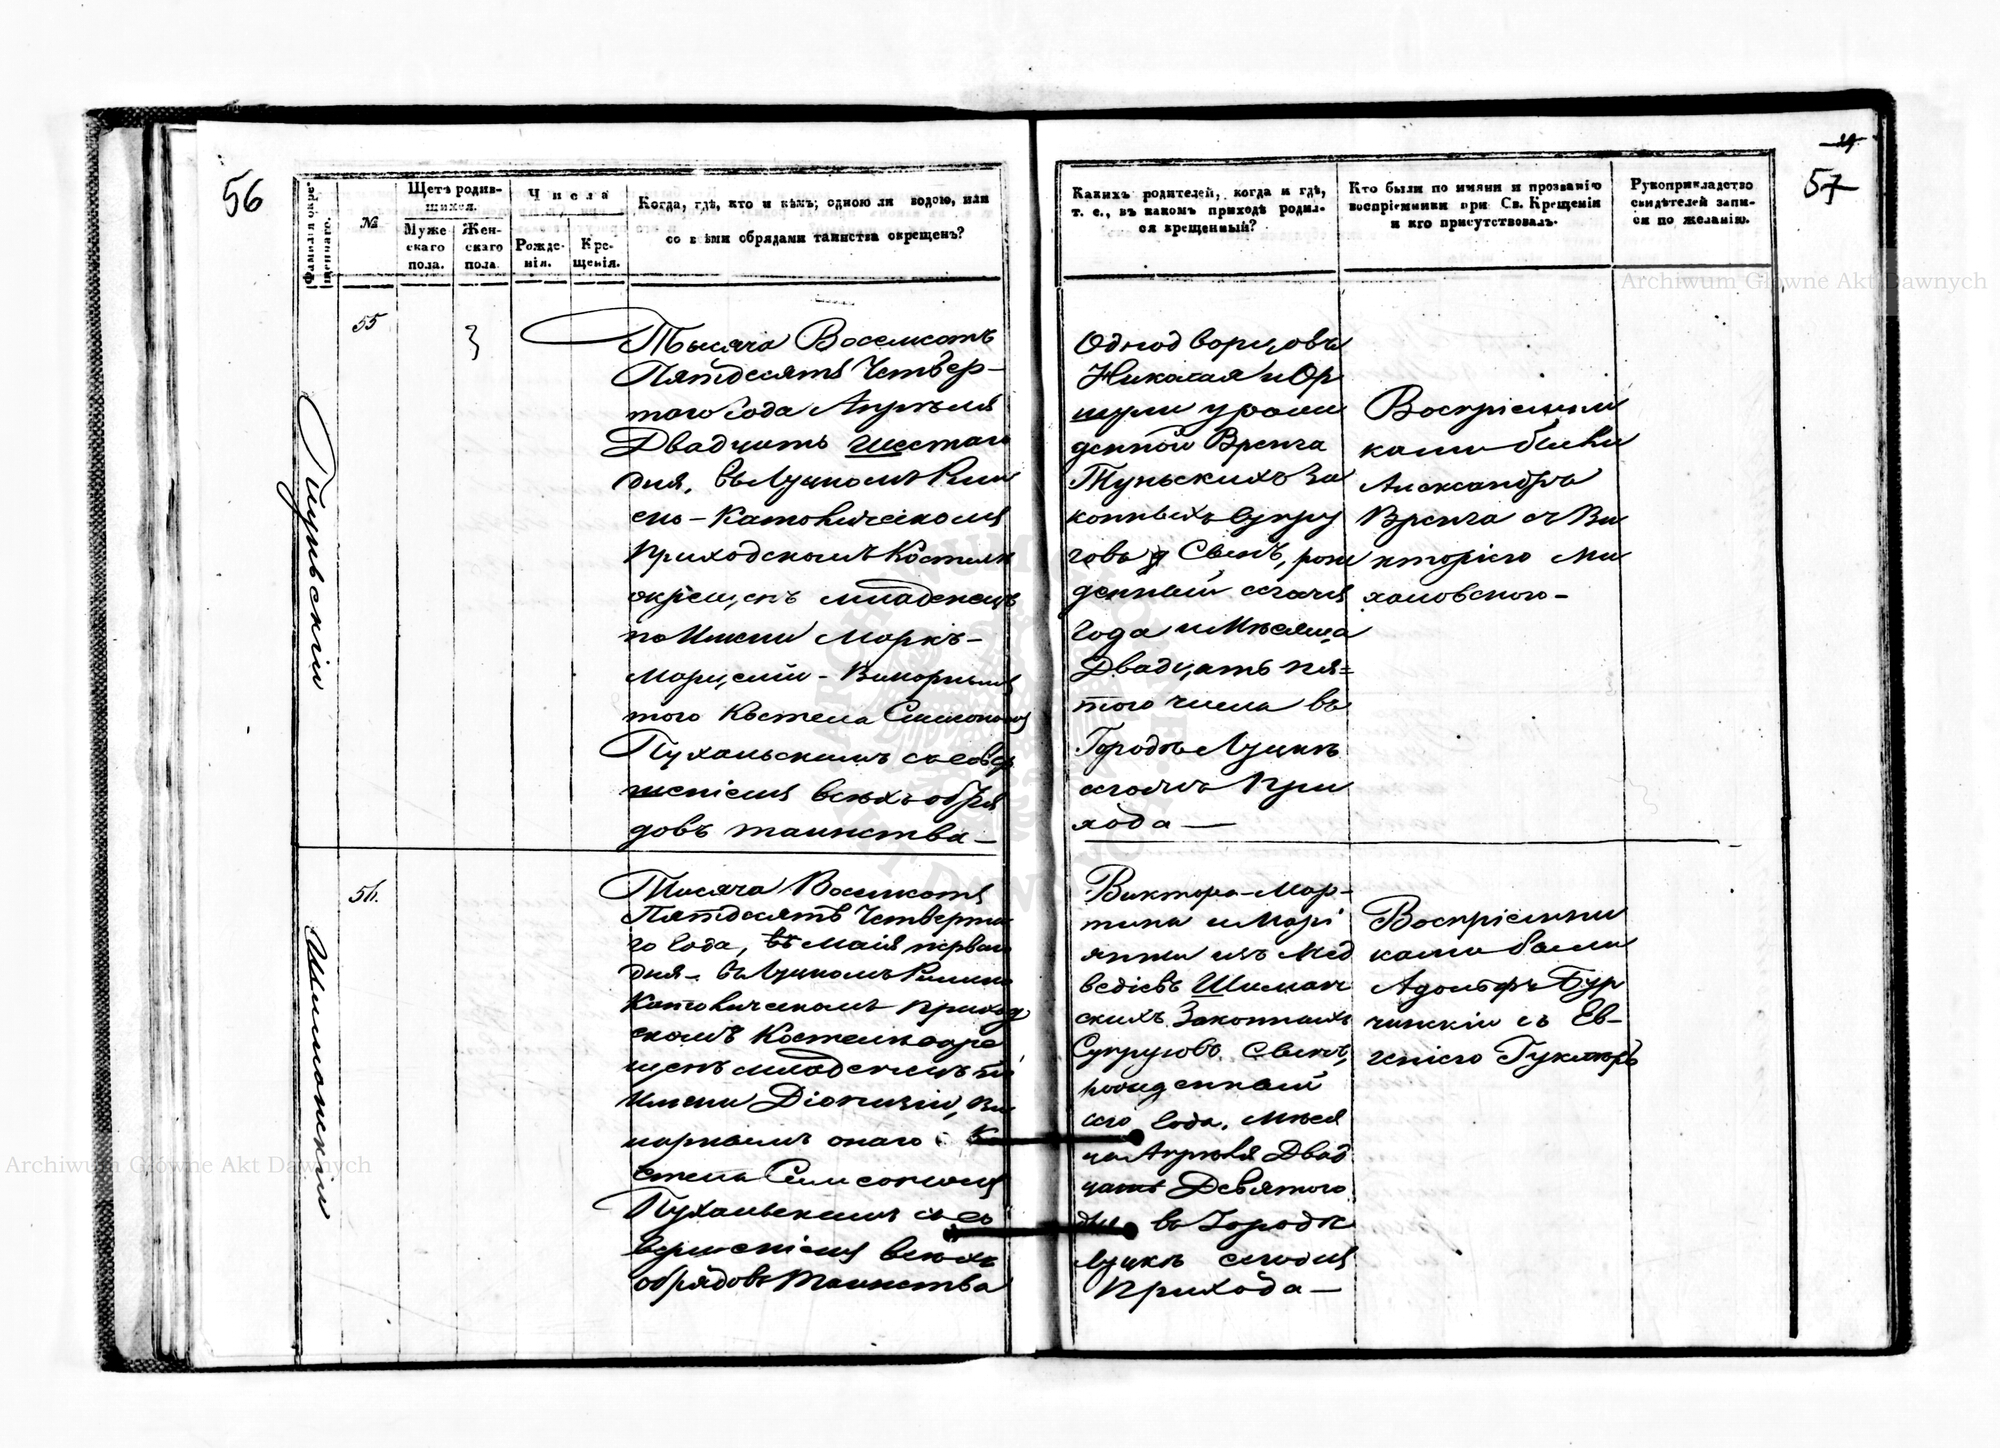 56
Фамилія окрещеннаго.
№
Щетъ родив-
шихся.
Муже
скаго
пола.
Жен-
скаго
пола
Числа
Рожде-
нія.
Кре-
щенія.
Когда, гдѣ, кто и кѣмъ; одною ли водою, или
со всѣми обрядами таинства окрещенъ?
Тпуньскій
55
Тысяча Восемсотъ
Пятдесятъ Четвер-
того Года Апрѣля
Двадцать шестаго
дня, въ Луцкомъ Рим
ско-Католическомъ
Приходскомъ Костелѣ
окрещенъ младенецъ
по Имени Маркъ-
Марцелій - Викорнымъ
того Костела Симономъ
Пухальскимъ съ совер
шеніемъ всѣхъ обря
довъ таинства-
Шимонскій
56.
Тысяча Восемсотъ
Пятдесятъ Четверта-
го Года, Маія перваго
дня - въ Луцкомъ Римско
Католическомъ Приход
скомъ Костелѣ окре
щенъ младенецъ по
Имени Діонизій, Ви
карнымъ онаго Ко
стела Симеономъ
Пухальскимъ съ со
вершеніемъ всѣхъ
обрядовъ Таинства
57
Какихъ родителей, когда и гдѣ,
т. е., въ какомъ приходѣ родил-
ся крещенный?
Кто были по имяни и прозванію
воспріемники при Св. Крещеніи
и кто присутствовалъ.
Рукоприкладство
свидѣтелей запи-
си по желанію.
Однодворцовъ
Николая и Ор
шули урож
денной Вренча
Тпуньскихъ За
конныхъ Супру
говъ Сынъ, рож
денный сегожъ
Года и Мѣсяца
Двадцать пя-
того числа въ
Городѣ Луцкѣ
сегожъ При
хода —
Воспріемни
ками были
Александръ
Вренча съ Ви
кторіею Ми
халовскою-
Виктора-Мар-
тина и Марі
янны изъ Мед
ведіевъ Шимон
скихъ Законныхъ
Супруговъ Сынъ,
рожденный
сего Года, Мѣся
ца Апрѣля Двад
цать Девятого
дня въ Городѣ
Луцкѣ сегожъ
Прихода —
Воспріемни
ками были
Адольфъ Бур
чинскій съ Ев-
геніею
Archiwum Główne Akt Dawnych
Archiwum Główne Akt Dawnych